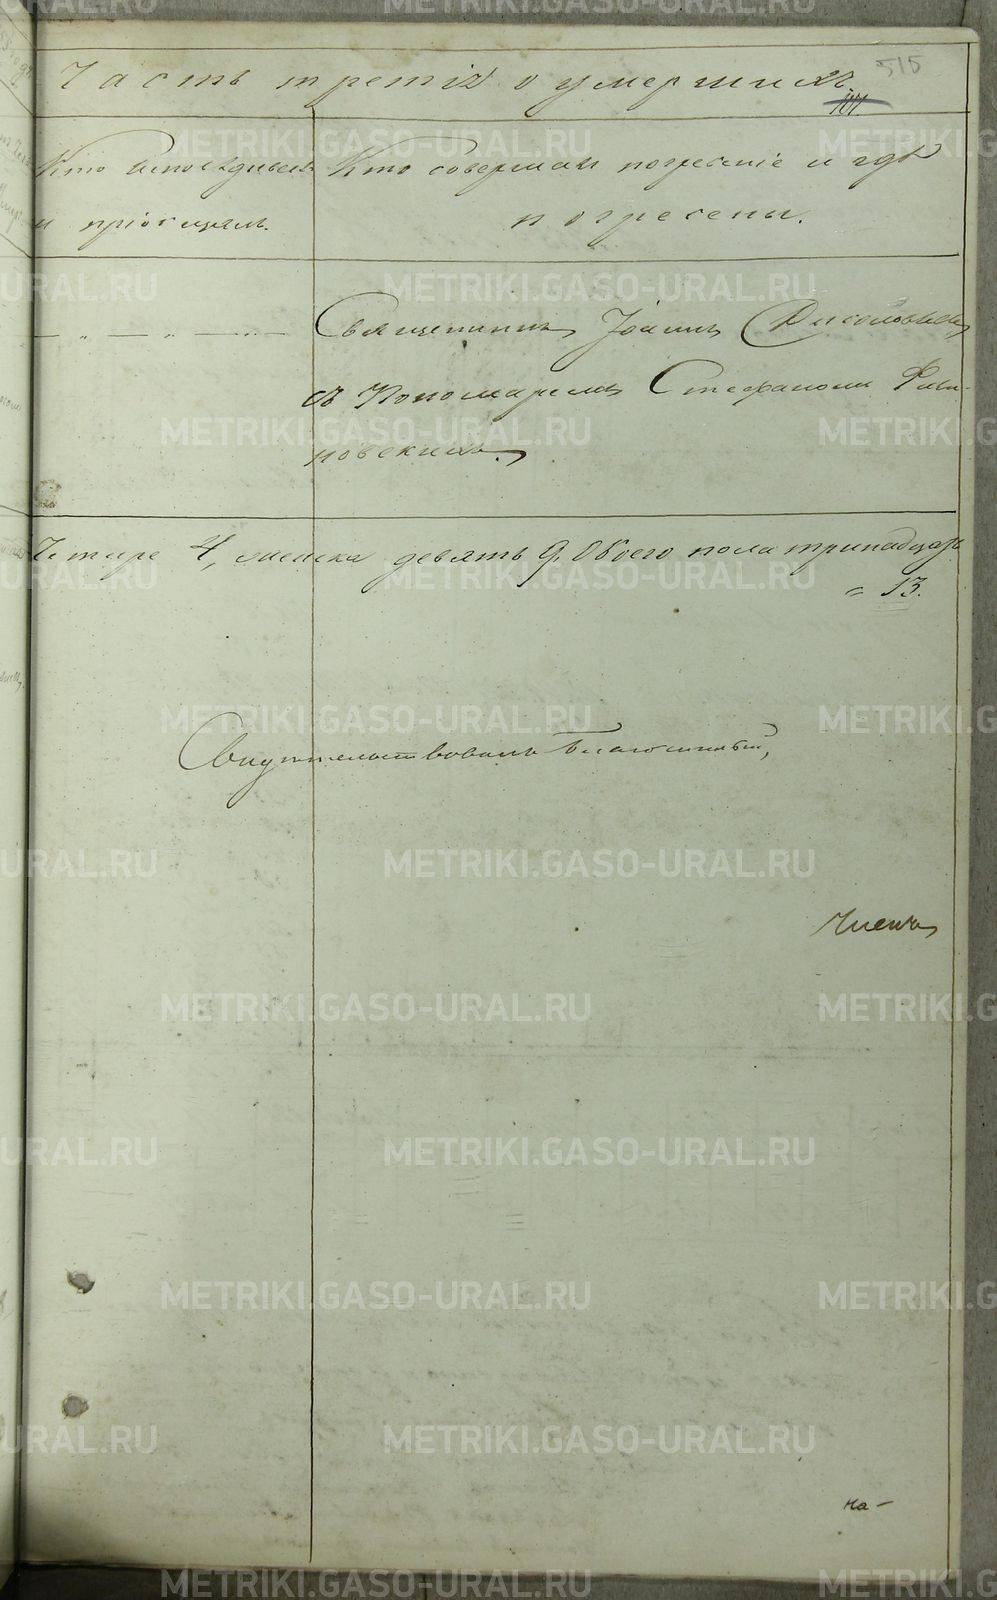 515
Часть третія о умершихъ
Кто исповѣдывалъ и пріобщалъ.
Кто совершалъ погребеніе и гдѣ погребены.
Священникъ Іоаннъ
съ Пономаремъ Стефаномъ
новскимъ.
Четыре 4, женска девять 9. Обоего пола тринадцать
= 13.
Свидѣтельствовалъ Благочинный,
на-
METRIKI.GASO-URAL.RU